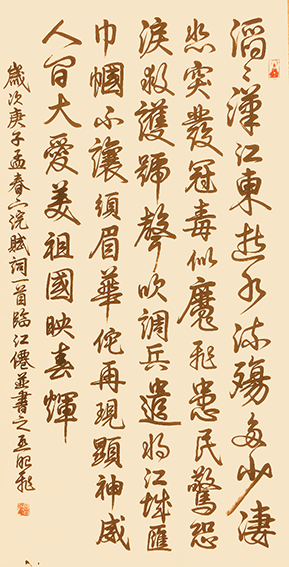 滔々漢江東逝水流殤多少淒
悲突發冠毒似魔飛患民驚恐
淚救護號聲吹調兵遣將江城匯
巾幗不讓須眉華佗再現顯神威
人間大愛美祖國映春輝
歲次庚子孟春浣賦詞一首臨江僊並書之